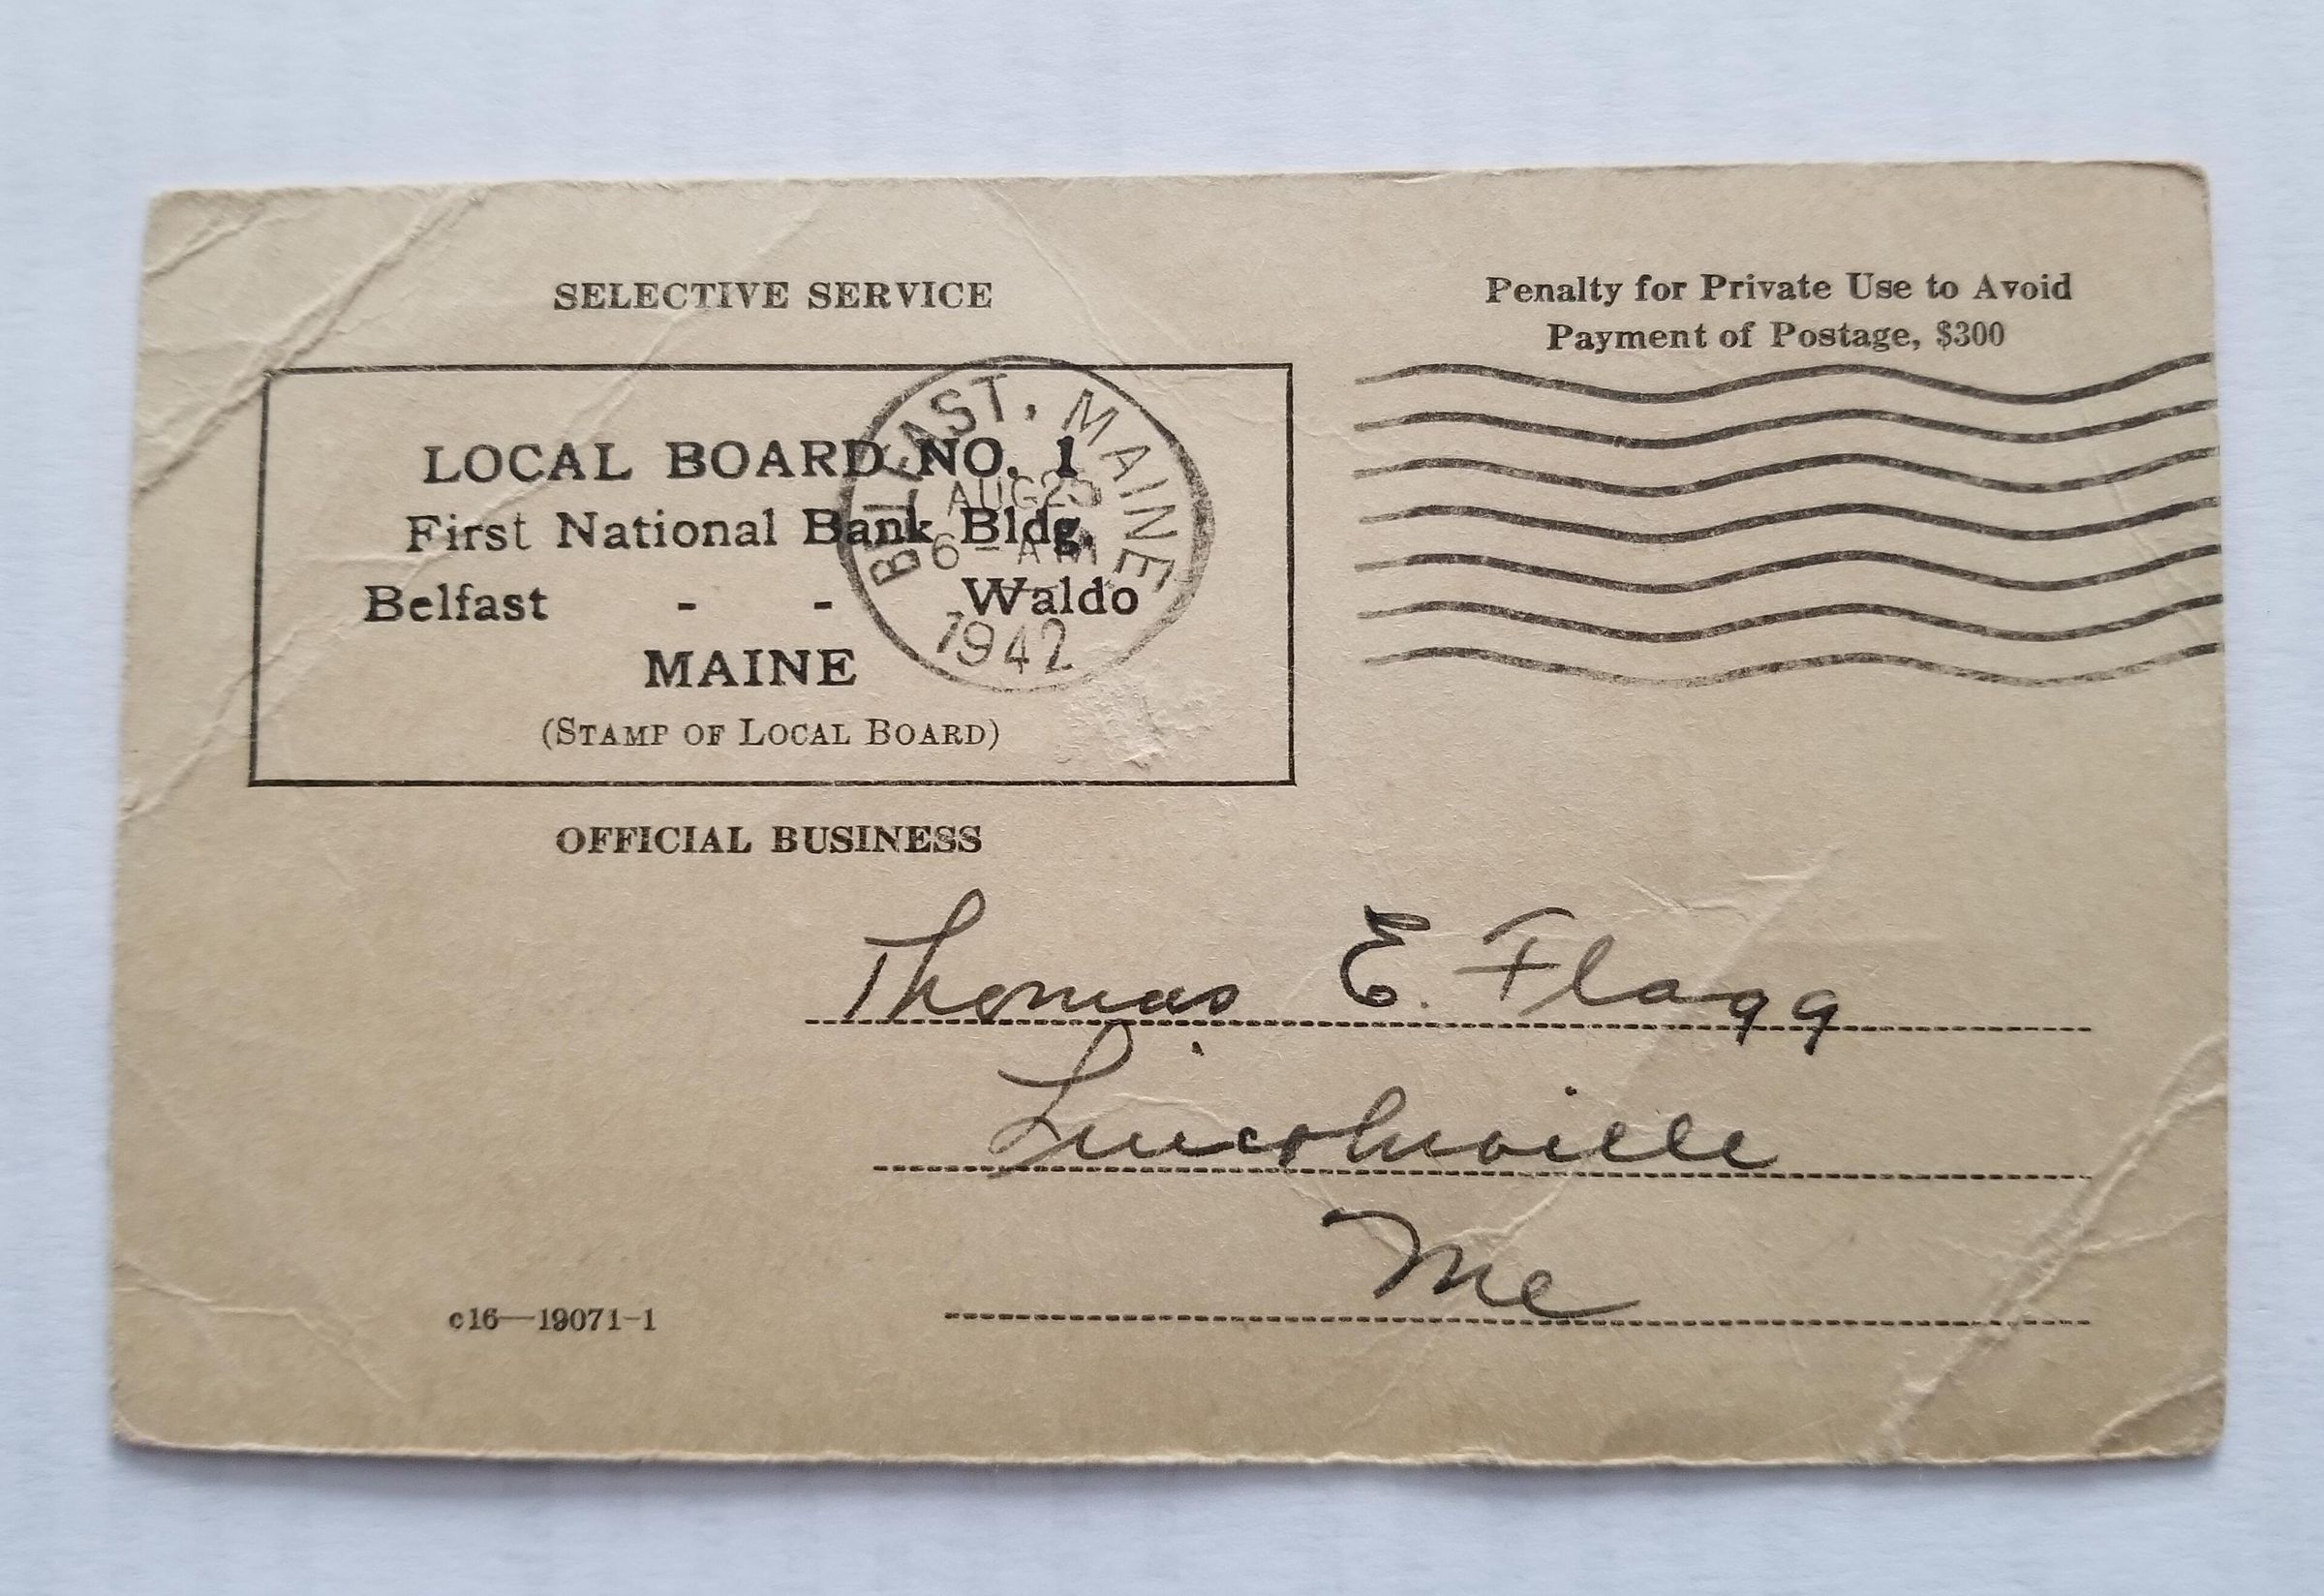 SELECTIVE SERVICE
Penalty for Private Use to Avoid
Payment of Postage, $300
LOCAL BOARD NO. 1
First National Bank Bldg.
Belfast - - Waldo
MAINE
(STAMP OF LOCAL BOARD)
BELFAST, MAINE
AUG 25
6 - AM
1942
OFFICIAL BUSINESS
Thomas E. Flagg
Lincolnville
Me
c16—19071-1